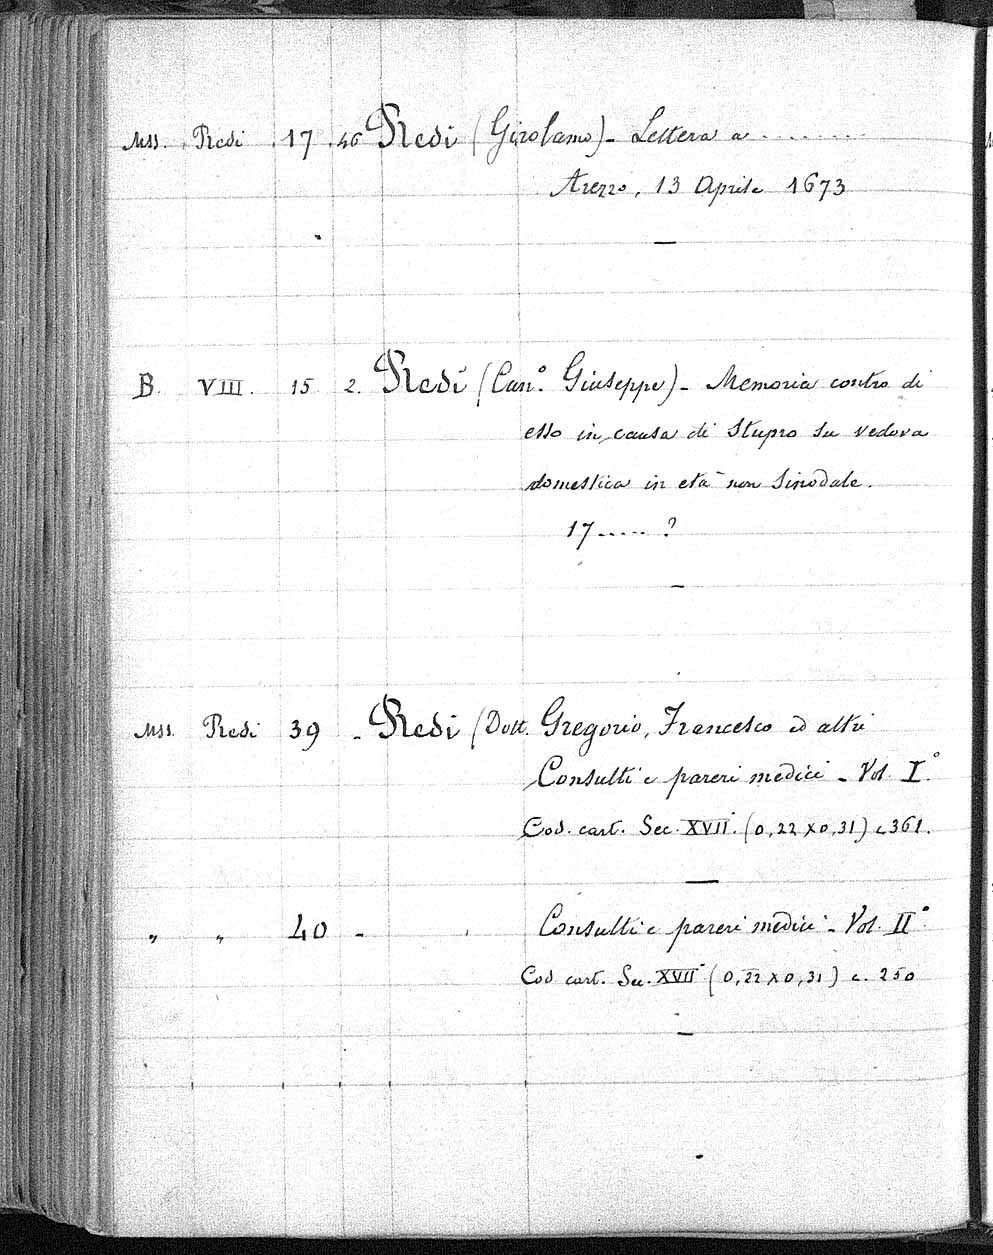 Mss. Redi 17. 46 Redi (Girolamo) - Lettera a ........
Arezzo, 13 Aprile 1673
B. VIII. 15 2. Redi (Can.° Giuseppe) - Memoria contro di
esso in causa di Stupro su vedova
domestica in età non Sinodale.
17..... ?
Mss. Redi 39 - Redi (Dott. Gregorio, Francesco ed altri
Consulti e pareri medici - Vol. I°.
Cod. cart. Sec. XVII. (0,22 X 0,31) c. 361.
" " 40 - Consulti e pareri medici - Vol. II°.
Cod. cart. Sec. XVII (0,22 X 0,31) c. 250